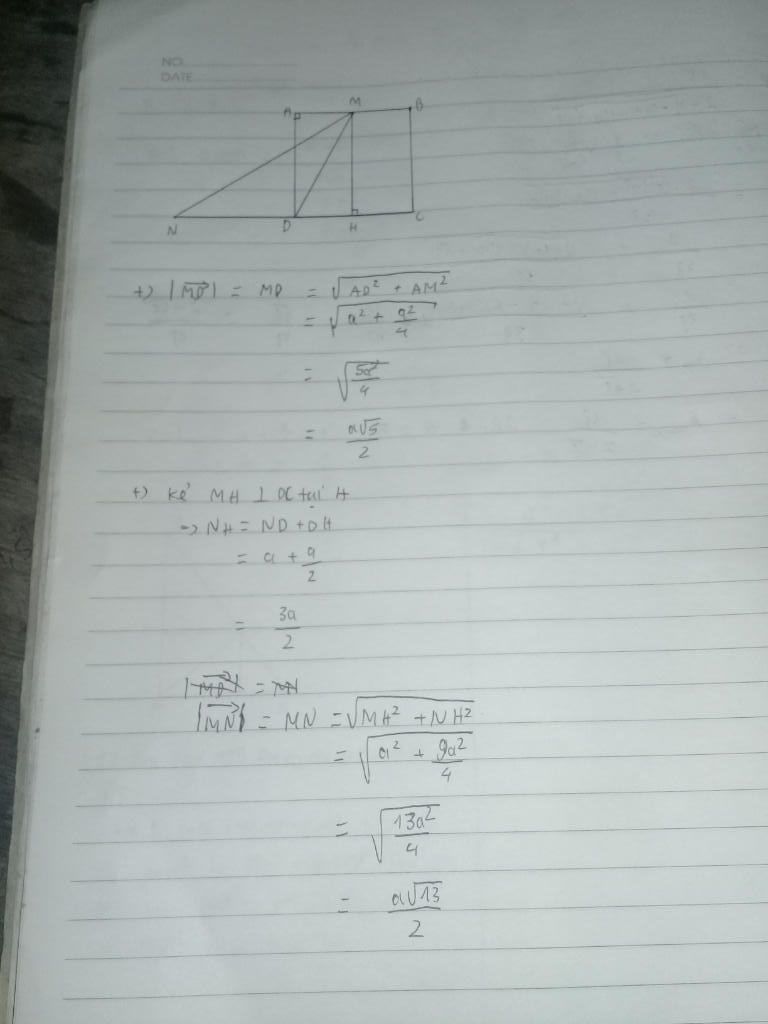 NO.
DATE
A M B
N D H C
+) |MD→| = MD = √(AD² + AM²)
= √(a² + a²/4)
= √(5a²/4)
= a√5/2
+) Kẻ MH ⊥ DC tại H
=> NH = ND + DH
= a + a/2
= 3a/2
|MN→| = MN = √(MH² + NH²)
= √(a² + 9a²/4)
= √(13a²/4)
= a√13/2